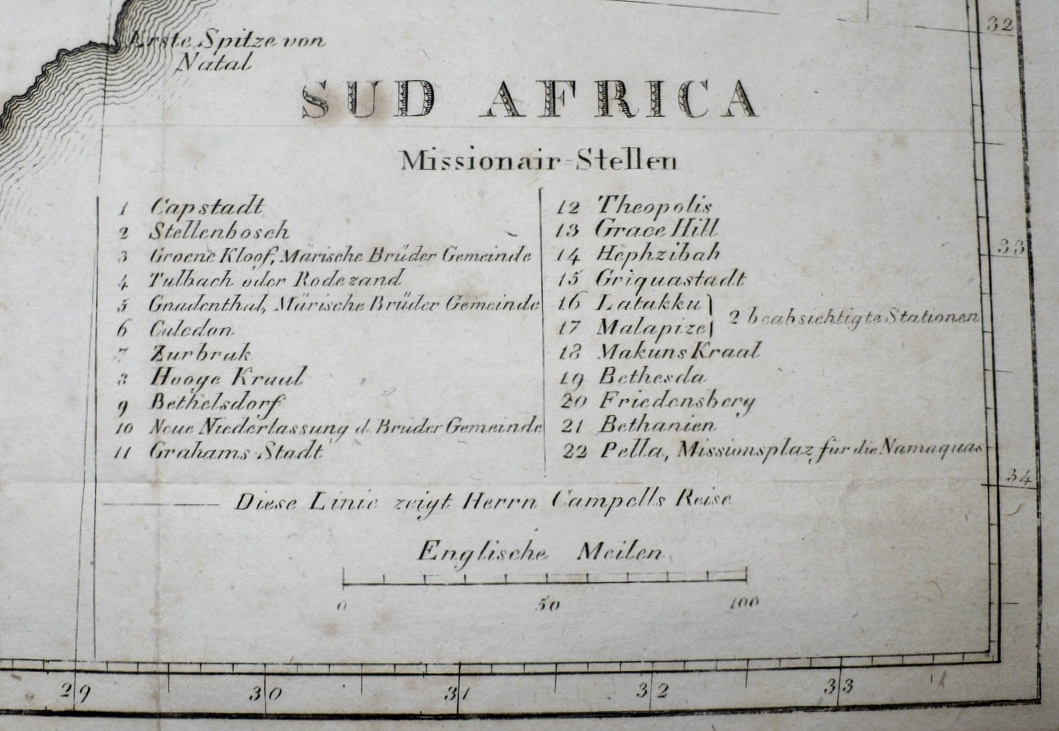 Erste Spitze von
Natal
SUD AFRICA
Missionair-Stellen
1 Capstadt
2 Stellenbosch
3 Groene Kloof, Märische Brüder Gemeinde
4 Tulbach oder Rodezand
5 Gnadenthal, Märische Brüder Gemeinde
6 Caledon
7 Zurbrak
8 Hooge Kraal
9 Bethelsdorf
10 Neue Niederlassung d. Brüder Gemeinde
11 Grahams Stadt
12 Theopolis
13 Grace Hill
14 Hephzibah
15 Griquastadt
16 Latakku
17 Malapize
2 beabsichtigte Stationen
18 Makuns Kraal
19 Bethesda
20 Friedensberg
21 Bethanien
22 Pella, Missionsplaz für die Namaquas
Diese Linie zeigt Herrn Campells Reise
Englische Meilen
0 50 100
32
33
34
29 30 31 32 33